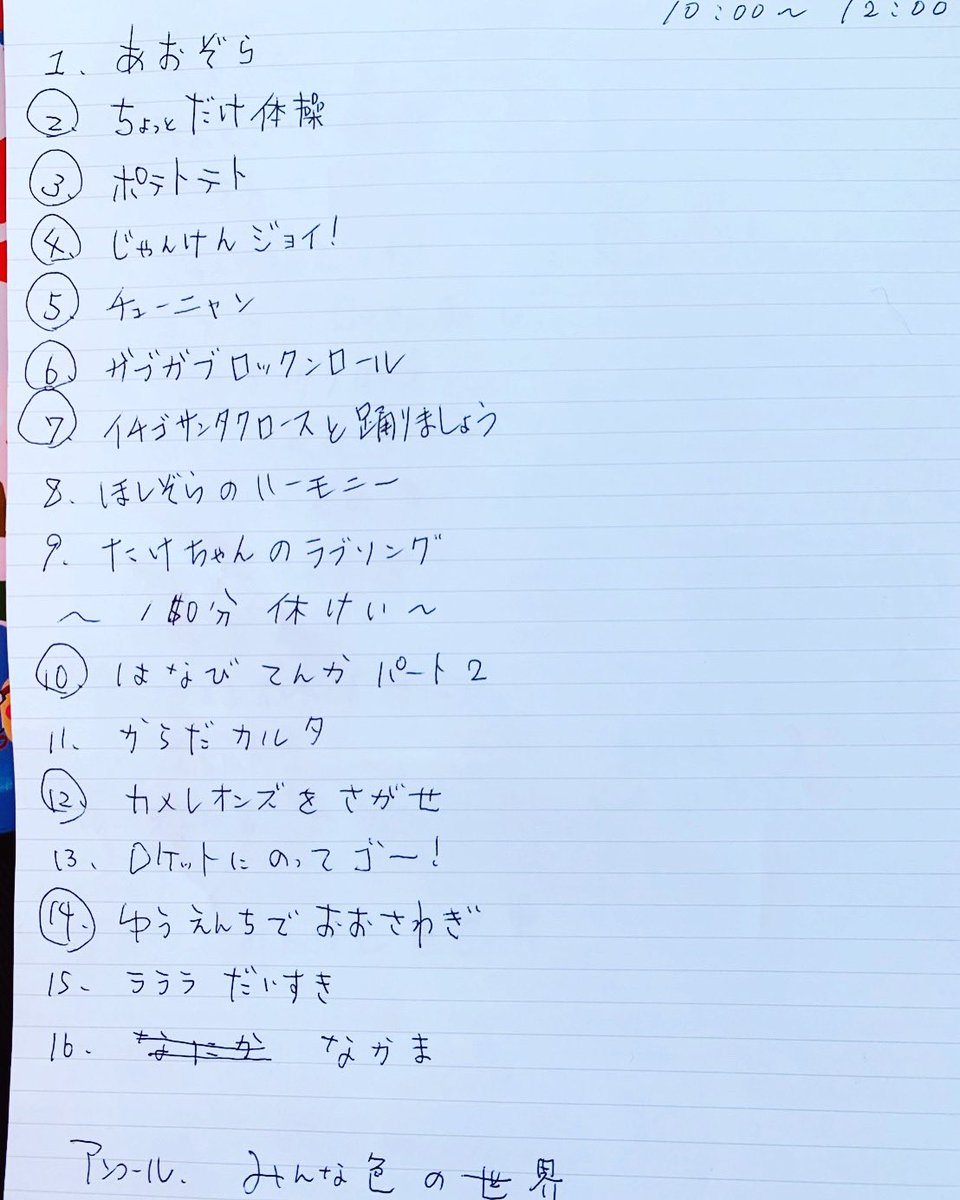 10:00〜 12:00
1. あおぞら
2. ちょっとだけ体操
3. ポテトテト
4. じゃんけんジョイ!
5. チューニャン
6. ガブガブロックンロール
7. イチゴサンタクロースと踊りましょう
8. ほしぞらのハーモニー
9. たけちゃんのラブソング
〜 10分 休けい 〜
10. はなび てんか パート2
11. からだカルタ
12. カメレオンズをさがせ
13. ロケットにのってゴー!
14. ゆうえんちでおおさわぎ
15. ラララ だいすき
16. なにか なかま
アンコール. みんな色の世界